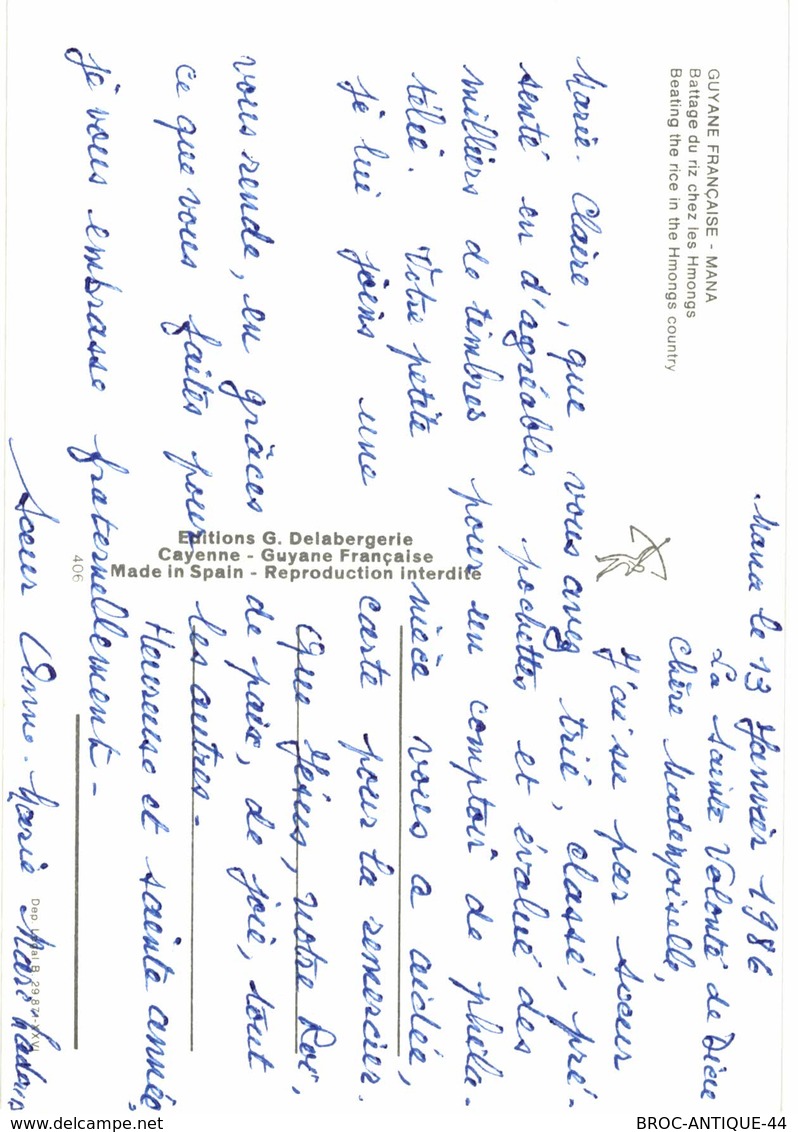 GUYANE FRANÇAISE - MANA
Battage du riz chez les Hmongs
Beating the rice in the Hmongs country
Mana le 13 Janvier 1986
La Sainte Volonté de Dieu
Chère Mademoiselle,
J'ai su par Soeur
Marie-Claire, que vous avez trié, classé, pré-
senté en d'agréables pochettes et évalué des
milliers de timbres pour un comptoir de phila-
télie. Votre petite nièce vous a aidée,
je lui joins une carte pour la remercier.
Que Jésus, notre Roi,
vous rende, en grâces de paix, de joie, tout
ce que vous faites pour les autres.-
Heureuse et sainte année,
je vous embrasse fraternellement-
Soeur Anne-Marie
Editions G. Delabergerie
Cayenne - Guyane Française
Made in Spain - Reproduction interdite
406
Dep. Legal B. 29.871-XXVI
BROC-ANTIQUE-44
www.delcampe.net